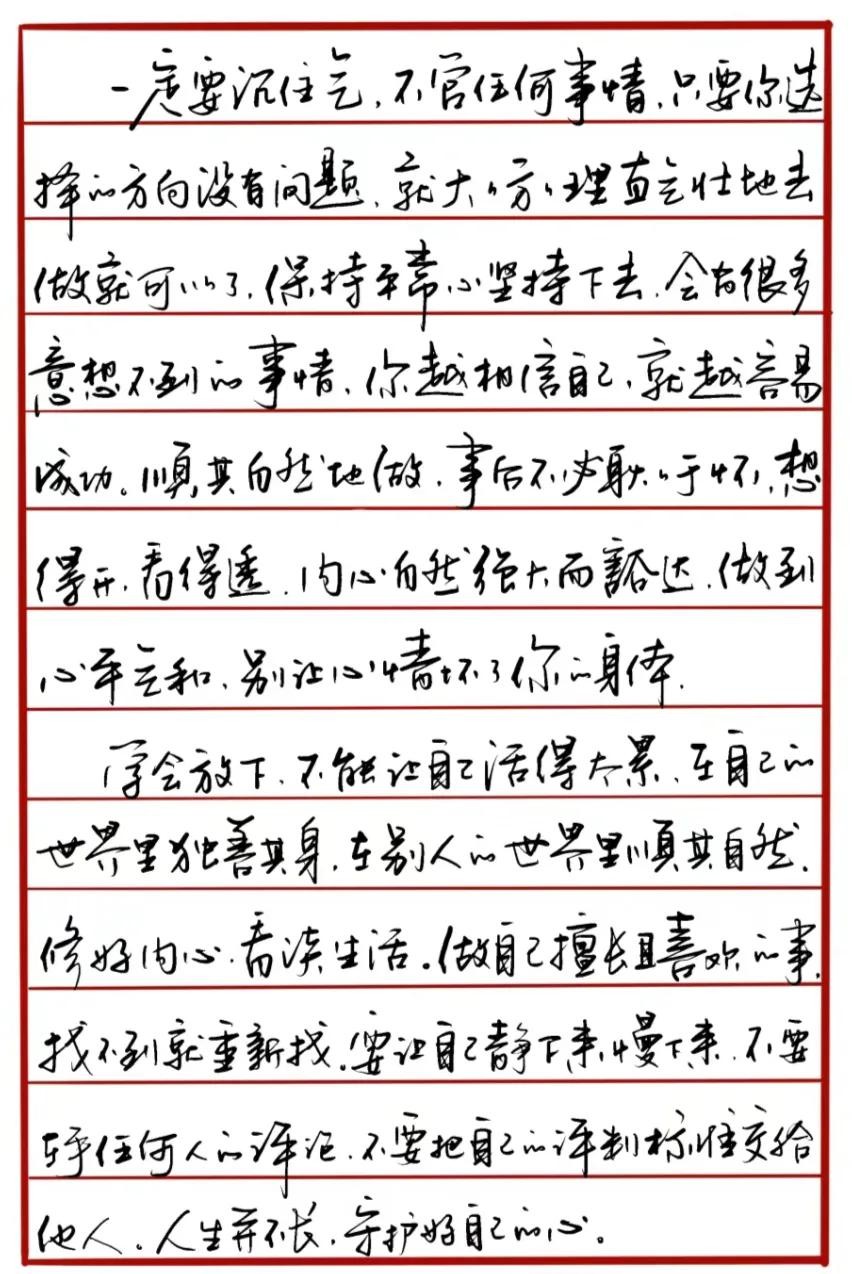 一定要沉住气，不管任何事情，只要你选
择的方向没有问题，就大大方方理直气壮地去
做就可以了，保持平常心坚持下去，会有很多
意想不到的事情，你越相信自己，就越容易
成功。顺其自然地做，事后不必耿耿于怀，想
得开，看得透，内心自然强大而豁达，做到
心平气和，别让心情坏了你的身体。
学会放下，不能让自己活得太累，在自己的
世界里独善其身，在别人的世界里顺其自然，
修好内心，看淡生活。做自己擅长且喜欢的事，
找不到就重新找。要让自己静下来，慢下来，不要
在乎任何人的评论，不要把自己的评判标准交给
他人。人生并不长，守护好自己的心。